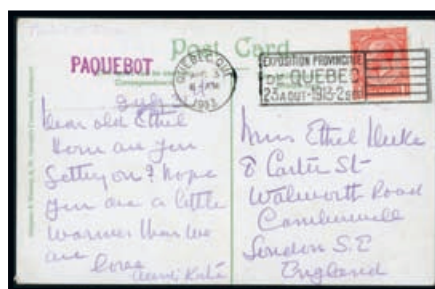 Post Card
PAQUEBOT
QUEBEC, QUE
1913
EXPOSITION PROVINCIALE
DE QUEBEC
23 AOUT-1913-2 SEP
July
Dear old Ethel
How are you
Getting on? hope
you are a little
warmer than we
are
love
Aunt Kate
Miss Ethel
8 Carter St
Walworth Road
Camberwell
London S.E
England